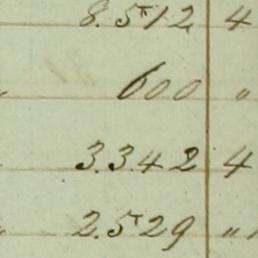 8.512 4
600 "
3.342 4
2.529 "